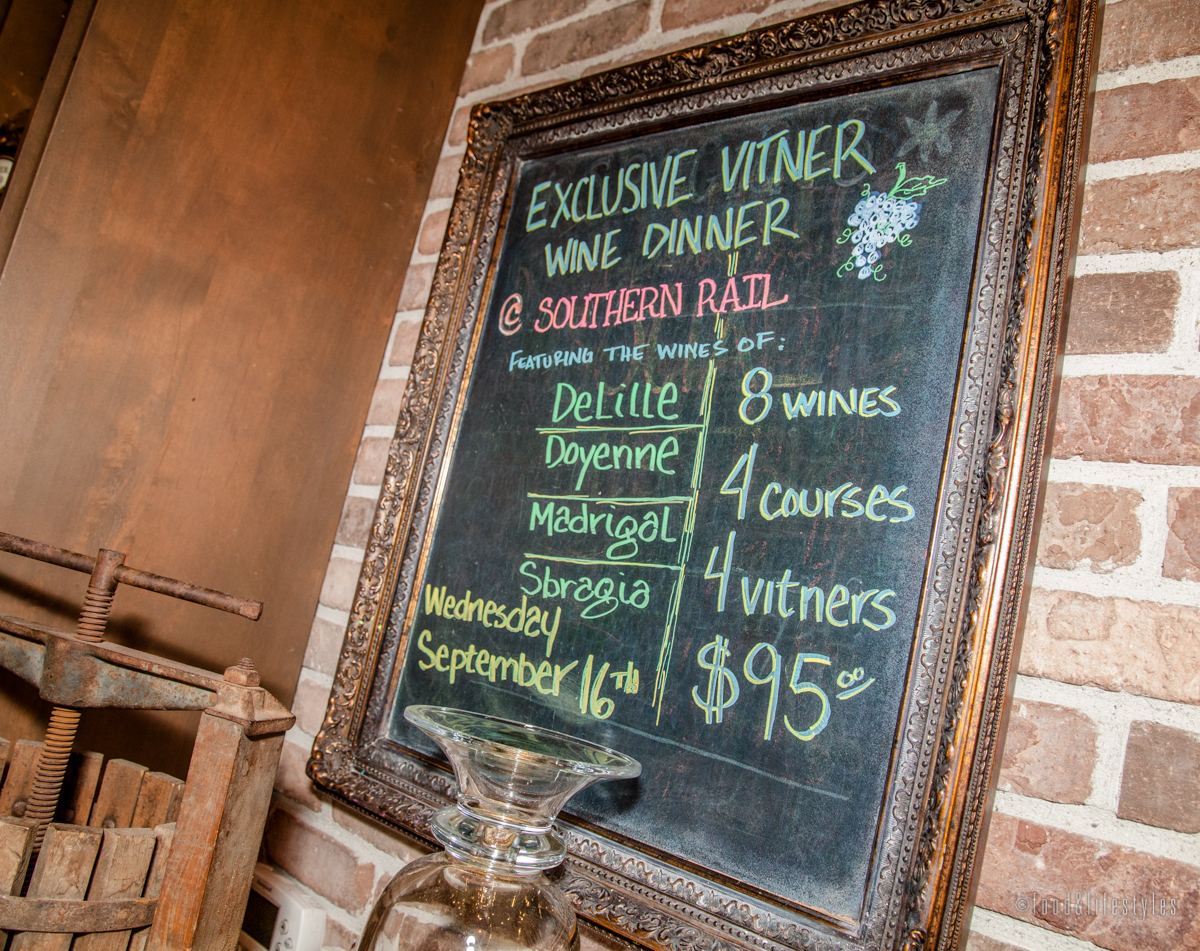 EXCLUSIVE VITNER
WINE DINNER
@ SOUTHERN RAIL
FEATURING THE WINES OF:
DeLille
Doyenne
Madrigal
Sbragia
Wednesday
September 16TH
8 WINES
4 courses
4 vitners
$95.00
©food&lifestyles